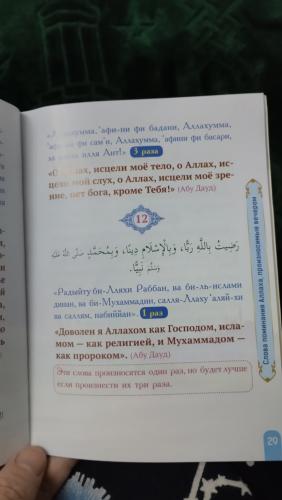 «Аллахумма, 'афи-ни фи бадани, Аллахумма,
'афи-ни фи сам'и, Аллахумма, 'афини фи басари,
ля иляха илля Ант!» 3 раза
«О Аллах, исцели моё тело, о Аллах, ис-
цели мой слух, о Аллах, исцели моё зре-
ние, нет бога, кроме Тебя!» (Абу Дауд)
12
رَضِيتُ بِاللَّهِ رَبًّا، وَبِالْإِسْلَامِ دِينًا، وَبِمُحَمَّدٍ صَلَّى اللَّهُ عَلَيْهِ
وَسَلَّمَ نَبِيًّا.
«Радыйту би-Лляхи Раббан, ва би-ль-ислами
динан, ва би-Мухаммадин, салля-Ллаху 'аляй-хи
ва саллям, набиййан». 1 раз
«Доволен я Аллахом как Господом, исла-
мом — как религией, и Мухаммадом —
как пророком». (Абу Дауд)
Эти слова произносятся один раз, но будет лучше
если произнести их три раза.
Слова поминания Аллаха, произносимые вечером
29